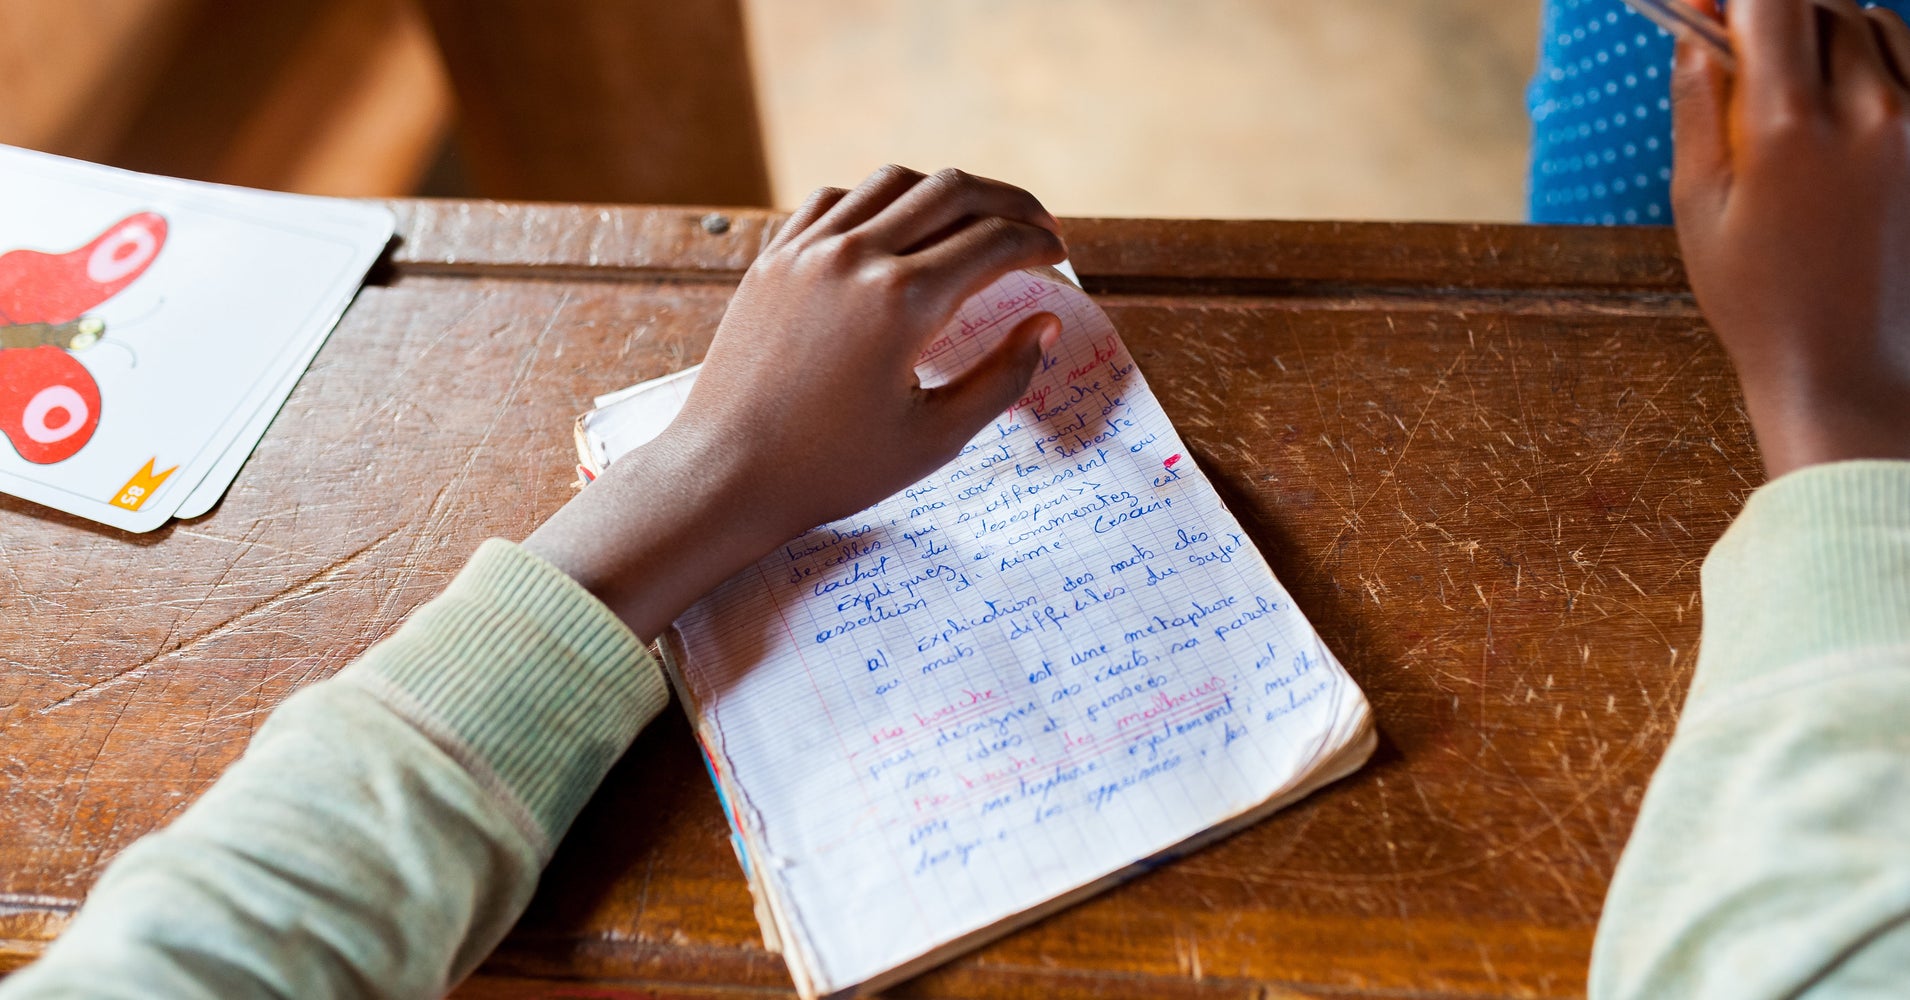 85
ion du sujet
le
pays natal
la bouche des
qui n'ont point de
bouches, ma voix la liberté
de celles qui s'affaissent au
cachot du desespoir>>
Expliquez et commentez cet
assertion d'Aimé Cesaire
a) Explication des mots clés
ou mots difficiles du sujet
- Ma bouche est une metaphore
pour désigner ses écrits, sa parole,
ses idées et pensées
- Ma bouche des malheurs: est
une metaphore également,
les opprimés, les esclaves